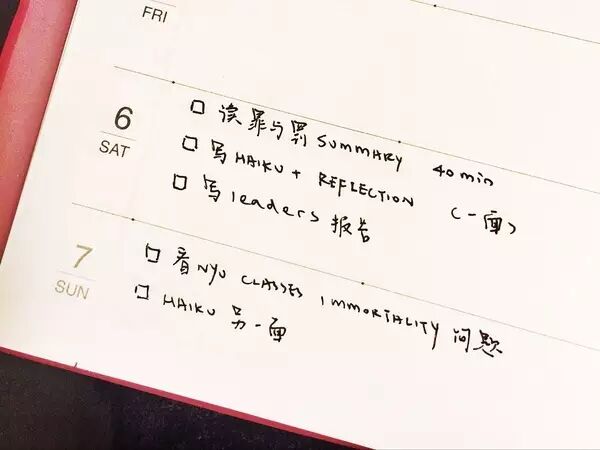 FRI
6
SAT
□ 读罪与罚 SUMMARY 40 min
□ 写HAIKU + REFLECTION (一面)
□ 写leaders 报告
7
SUN
□ 看NYU CLASSES IMMORTALITY 问题
□ HAIKU 另一面